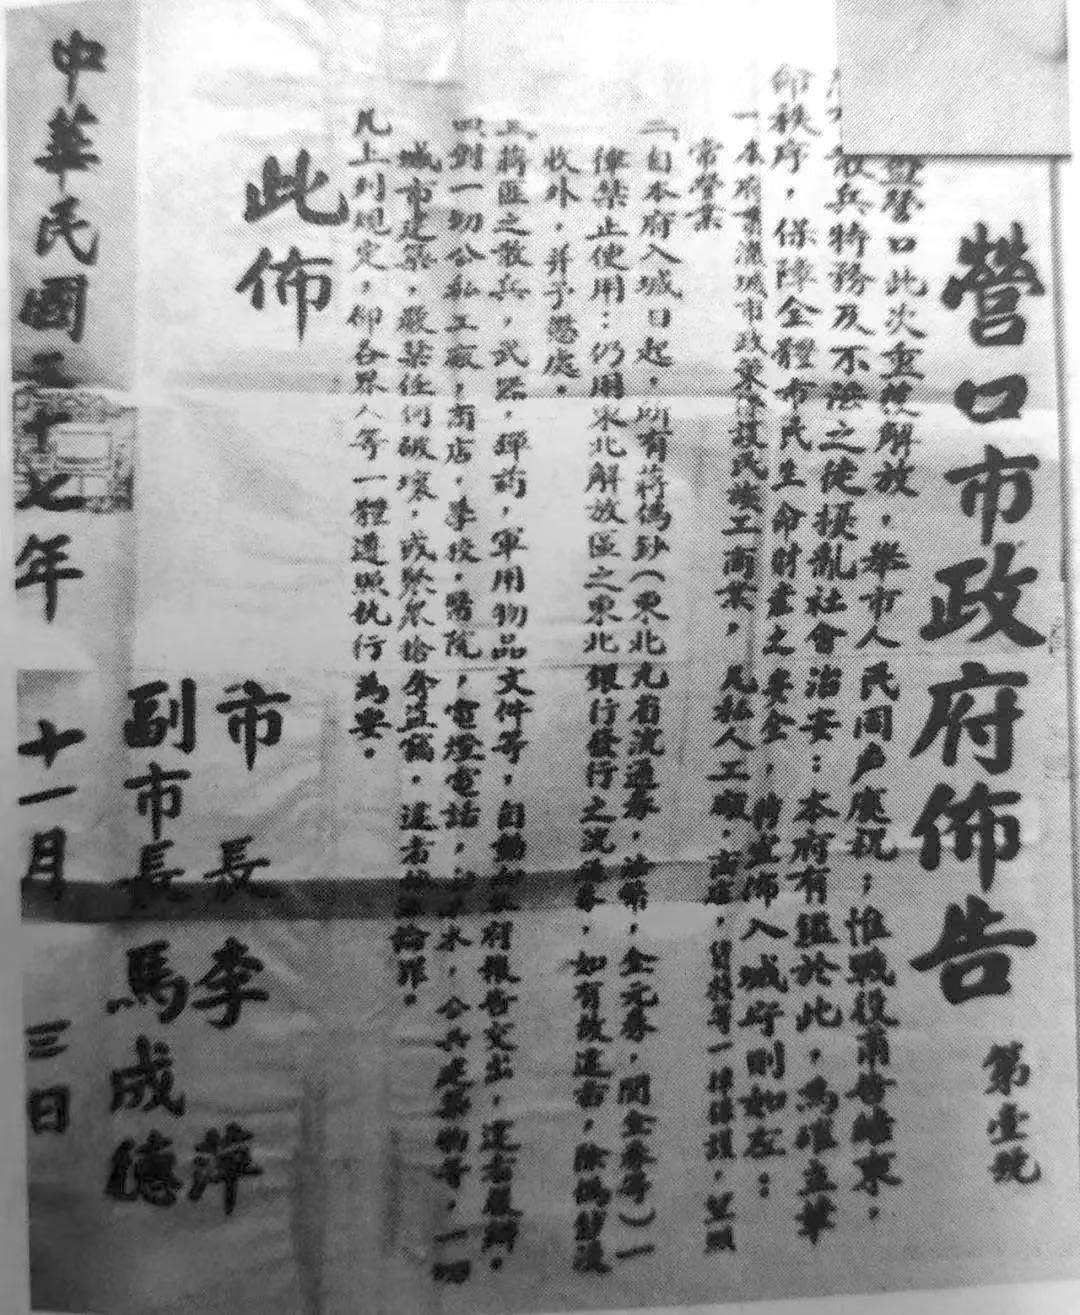 營口市政府佈告 第壹號
營口此次重獲解放，舉市人民同戶慶祝；惟戰役甫告結束，
散兵特務及不法之徒擾亂社會治安：本府有鑑於此，為確立革
命秩序，保障全體市民生命財產之安全，特宣佈入城守則如左：
一本府 城市政策保護民族工商業，凡私人工廠，商店，貨棧等一律保護，望照
常營業
二自本府入城日起，所有蔣偽鈔（東北九省流通券，法幣，金元券，關金券等）一
律禁止使用：仍用東北解放區之東北銀行發行之流通券，如有故違者，除偽鈔沒
收外，并予懲處。
三蔣匪之散兵，武器，彈葯，軍用物品文件等，自動 報告交出，違者嚴辦。
四對一切公私工廠，商店，學校，醫院，電燈電話， 水，公共建築物等，一切
城市建築，嚴禁任何破壞，或聚眾搶奪盜竊，違者依法論罪。
凡上列規定，仰各界人等一體遵照執行為要。
此佈
市長 李萍
副市長 馬成德
中華民國三十七年 十一月 三日